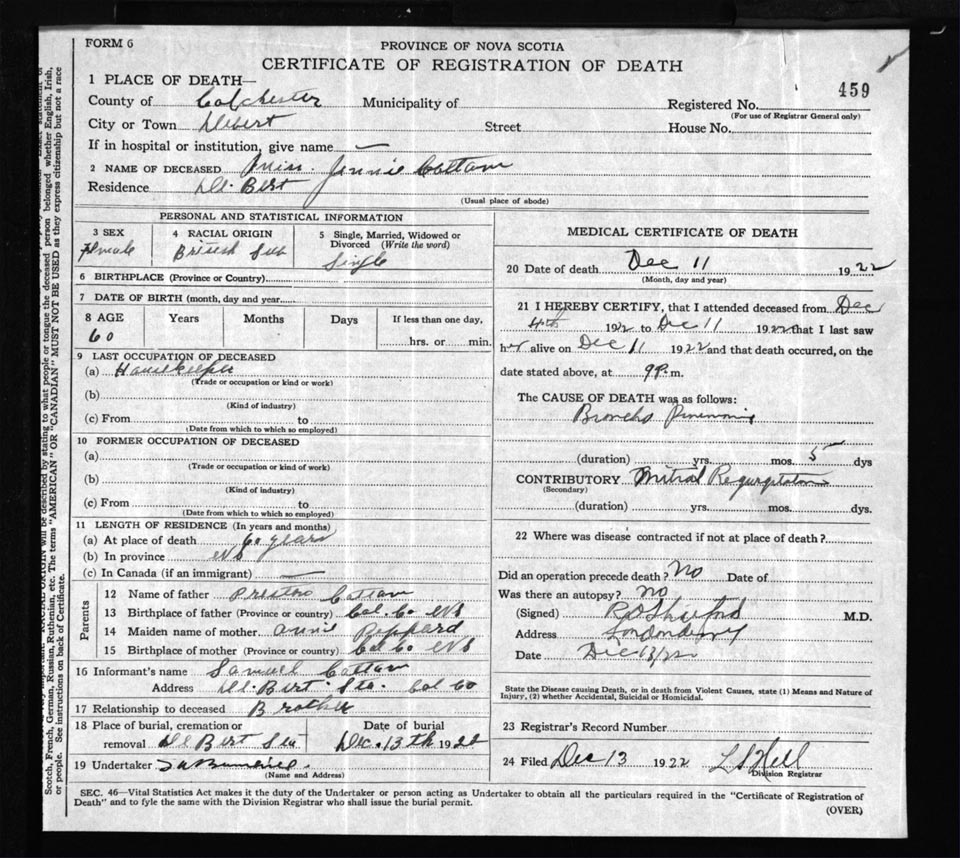 FORM 6
PROVINCE OF NOVA SCOTIA
CERTIFICATE OF REGISTRATION OF DEATH
459
1 PLACE OF DEATH—
County of Colchester Municipality of Registered No.
(For use of Registrar General only)
City or Town Debert Street House No.
If in hospital or institution, give name —
2 NAME OF DECEASED Miss Jennie Cottam
Residence De. Bert
(Usual place of abode)
PERSONAL AND STATISTICAL INFORMATION
3 SEX 4 RACIAL ORIGIN 5 Single, Married, Widowed or
Divorced (Write the word)
Female British Sub Single
6 BIRTHPLACE (Province or Country)
7 DATE OF BIRTH (month, day and year
8 AGE Years Months Days If less than one day,
60 hrs. or min.
9 LAST OCCUPATION OF DECEASED
(a) Housekeeper
(Trade or occupation or kind or work)
(b)
(Kind of industry)
(c) From to
(Date from which to which so employed)
10 FORMER OCCUPATION OF DECEASED
(a)
(Trade or occupation or kind of work)
(b)
(Kind of industry)
(c) From to
(Date from which to which so employed)
11 LENGTH OF RESIDENCE (In years and months)
(a) At place of death 60 years
(b) In province NS
(c) In Canada (if an immigrant) —
Parents
12 Name of father Preston Cottam
13 Birthplace of father (Province or country) Col. Co NS
14 Maiden name of mother Annie Peppard
15 Birthplace of mother (Province or country) Col Co NS
16 Informant's name Samuel Cottam
Address De. Bert Sta. Col Co
17 Relationship to deceased Brother
18 Place of burial, cremation or Date of burial
removal De Bert Sta Dec. 13th 1922
19 Undertaker
(Name and Address)
MEDICAL CERTIFICATE OF DEATH
20 Date of death Dec 11 1922
(Month, day and year)
21 I HEREBY CERTIFY, that I attended deceased from Dec
4th 192 to Dec 11 1922 that I last saw
her alive on Dec 11 1922 and that death occurred, on the
date stated above, at 9P.m.
The CAUSE OF DEATH was as follows:
Broncho Pneumonia
(duration) yrs. mos. 5 dys
CONTRIBUTORY Mitral Regurgitation
(Secondary)
(duration) yrs. mos. dys.
22 Where was disease contracted if not at place of death?
Did an operation precede death? No Date of
Was there an autopsy? no
(Signed) M.D.
Address Londonderry
Date Dec 13/22
State the Disease causing Death, or in death from Violent Causes, state (1) Means and Nature of
Injury, (2) whether Accidental, Suicidal or Homicidal.
23 Registrar's Record Number
24 Filed Dec 13 1922
Division Registrar
SEC. 46—Vital Statistics Act makes it the duty of the Undertaker or person acting as Undertaker to obtain all the particulars required in the "Certificate of Registration of
Death" and to fyle the same with the Division Registrar who shall issue the burial permit.
(OVER)
RACIAL ORIGIN will be described by stating to what people or tongue the deceased person belonged whether English, Irish,
Scotch, French, German, Russian, Ruthenian, etc. The terms "AMERICAN" OR "CANADIAN" MUST NOT BE USED as they express citizenship but not a race
or people. See instructions on back of Certificate.